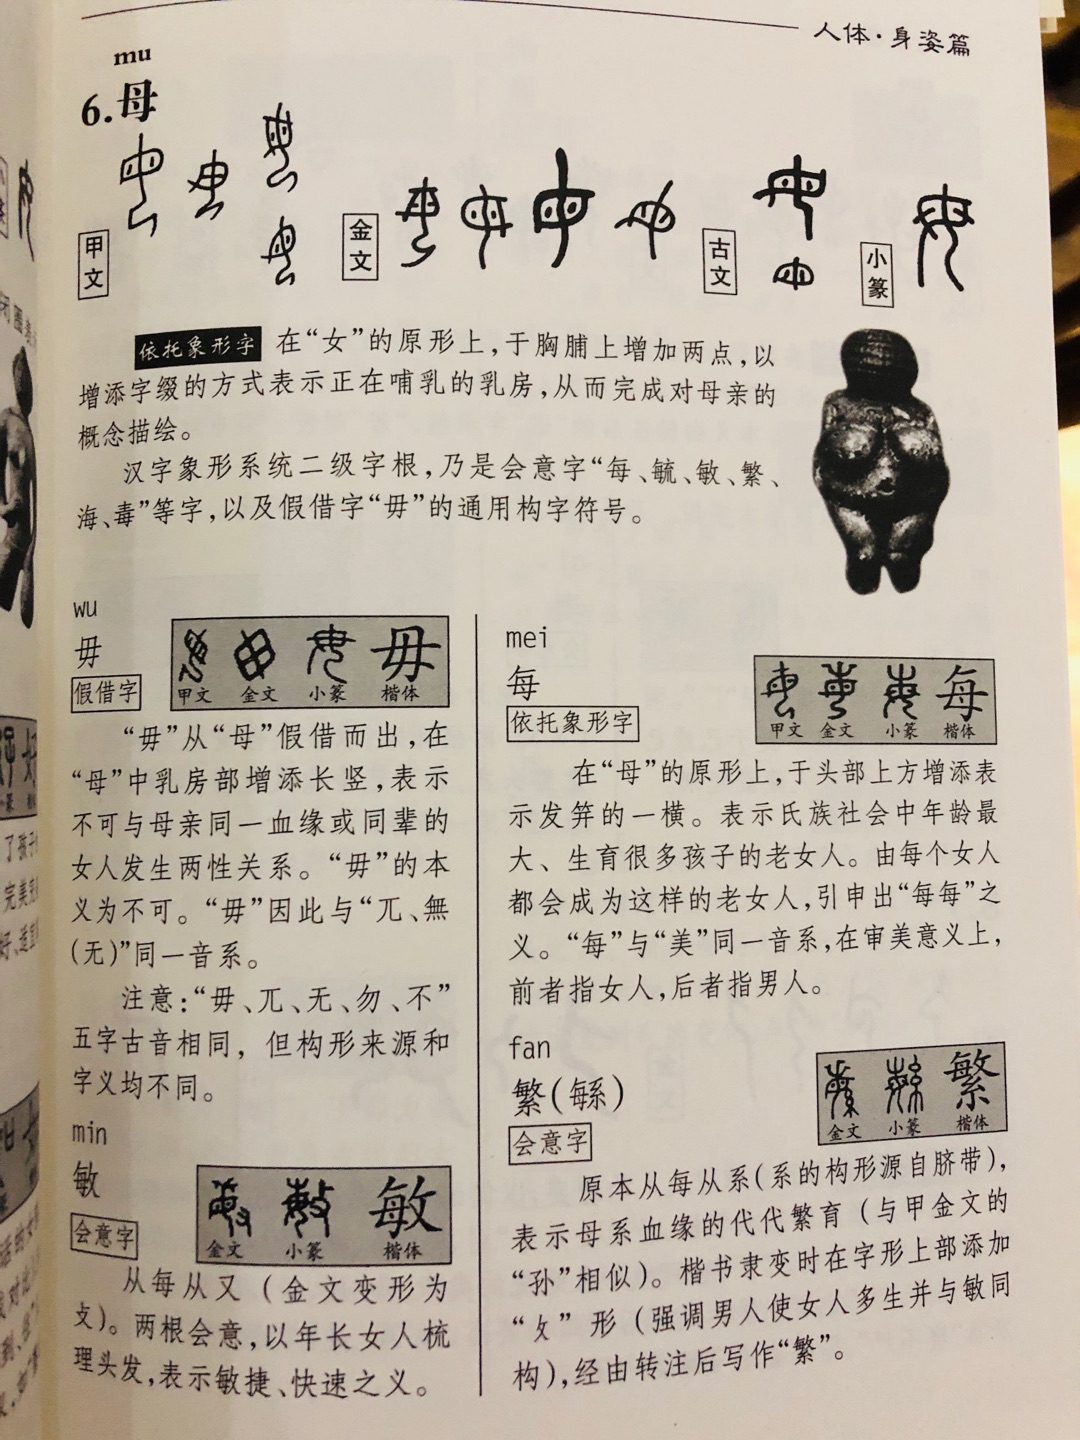 人体·身姿篇
mu
6.母
甲文
金文
古文
小篆
依托象形字 在“女”的原形上,于胸脯上增加两点,以
增添字缀的方式表示正在哺乳的乳房,从而完成对母亲的
概念描绘。
汉字象形系统二级字根,乃是会意字“每、毓、敏、繁、
海、毒”等字,以及假借字“毋”的通用构字符号。
wu
毋
假借字
毋
甲文 金文 小篆 楷体
“毋”从“母”假借而出,在
“母”中乳房部增添长竖,表示
不可与母亲同一血缘或同辈的
女人发生两性关系。“毋”的本
义为不可。“毋”因此与“兀、無
(无)”同一音系。
注意:“毋、兀、无、勿、不”
五字古音相同,但构形来源和
字义均不同。
min
敏
会意字
敏
金文 小篆 楷体
从每从又(金文变形为
攴)。两根会意,以年长女人梳
理头发,表示敏捷、快速之义。
mei
每
依托象形字
每
甲文 金文 小篆 楷体
在“母”的原形上,于头部上方增添表
示发笄的一横。表示氏族社会中年龄最
大、生育很多孩子的老女人。由每个女人
都会成为这样的老女人,引申出“每每”之
义。“每”与“美”同一音系,在审美意义上,
前者指女人,后者指男人。
fan
繁(緐)
会意字
繁
金文 小篆 楷体
原本从每从系(系的构形源自脐带),
表示母系血缘的代代繁育(与甲金文的
“孙”相似)。楷书隶变时在字形上部添加
“攵”形(强调男人使女人多生并与敏同
构),经由转注后写作“繁”。